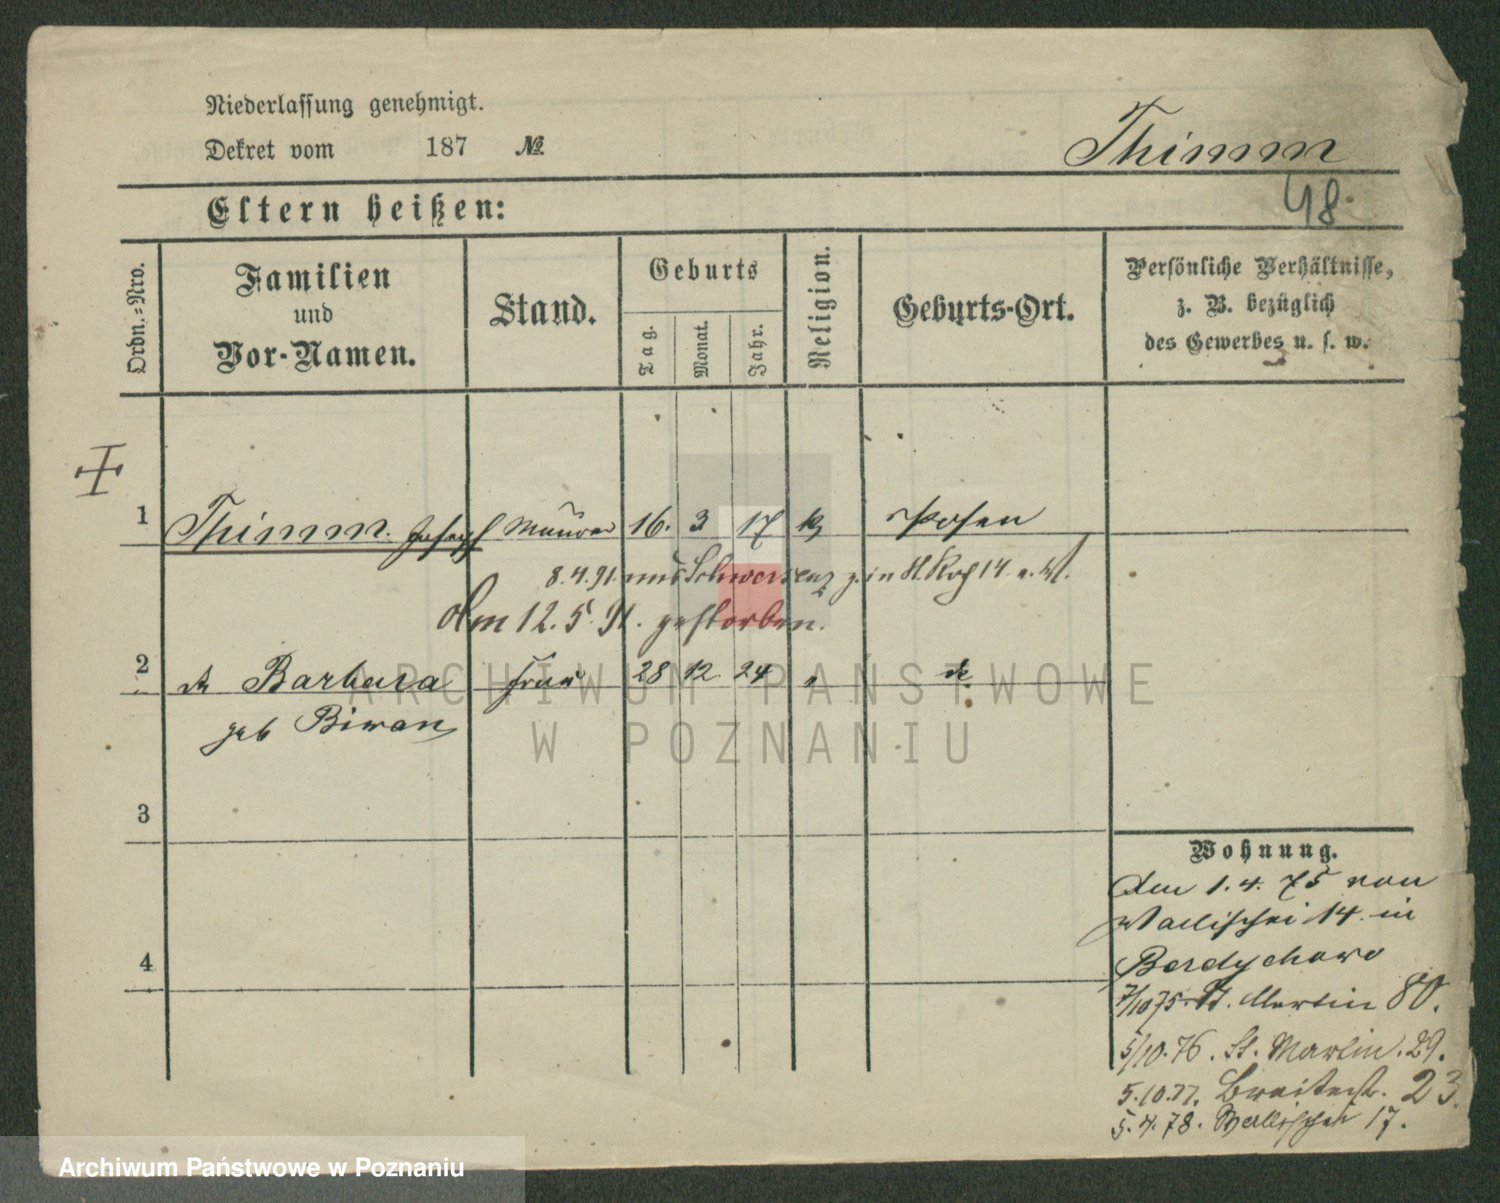 Niederlassung genehmigt.
Dekret vom 187 №
Thimm
48.
Eltern heißen:
Ordn.-Nro.
Familien
und
Vor-Namen.
Stand.
Geburts
Tag.
Monat.
Jahr.
Religion.
Geburts-Ort.
Persönliche Verhältnisse,
z. B. bezüglich
des Gewerbes u. s. w.
1 Thimm Joseph Maurer 16. 3 17 k Posen
8.4.91. aus Schwersenz z. in 14
Am 12.5.91. gestorben.
2 Barbara Frau 28 12 24 " do
geb Biwan
3
4
Wohnung.
Am 1.4.75 von
Wallischei 14 in
Berdychowo
7/10 75 St. Martin 80.
5/10.76. St. Martin. 29.
5.10.77. Breitestr. 23.
5.4.78. Wallischei 17.
ARCHIWUM PAŃSTWOWE
W POZNANIU
Archiwum Państwowe w Poznaniu